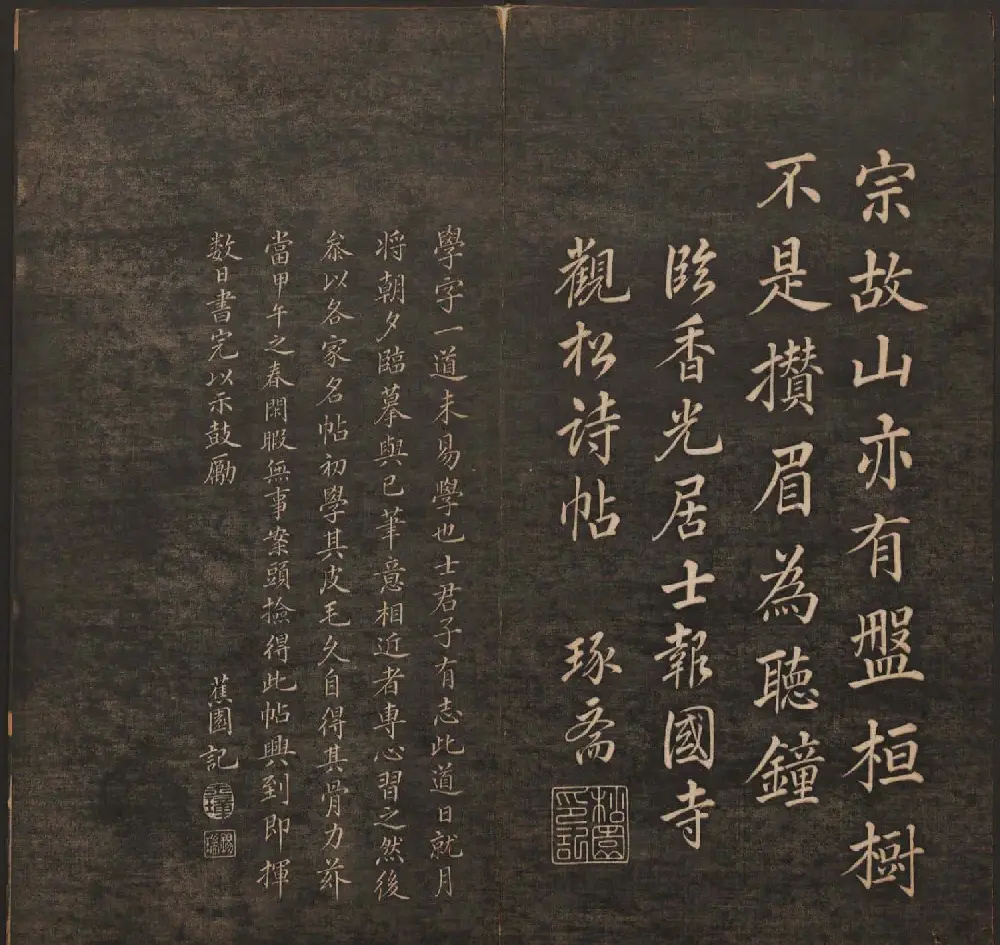 宗故山亦有盤桓樹
不是攢眉為聽鐘
臨香光居士報國寺
觀松诗帖 琢斋
學字一道未易學也士君子有志此道日就月
将朝夕臨摹與己筆意相近者專心習之然後
叅以各家名帖初學其皮毛久自得其骨力茲
當甲午之春閑暇無事案頭撿得此帖興到即揮
数日書完以示鼓勵 蕉園記